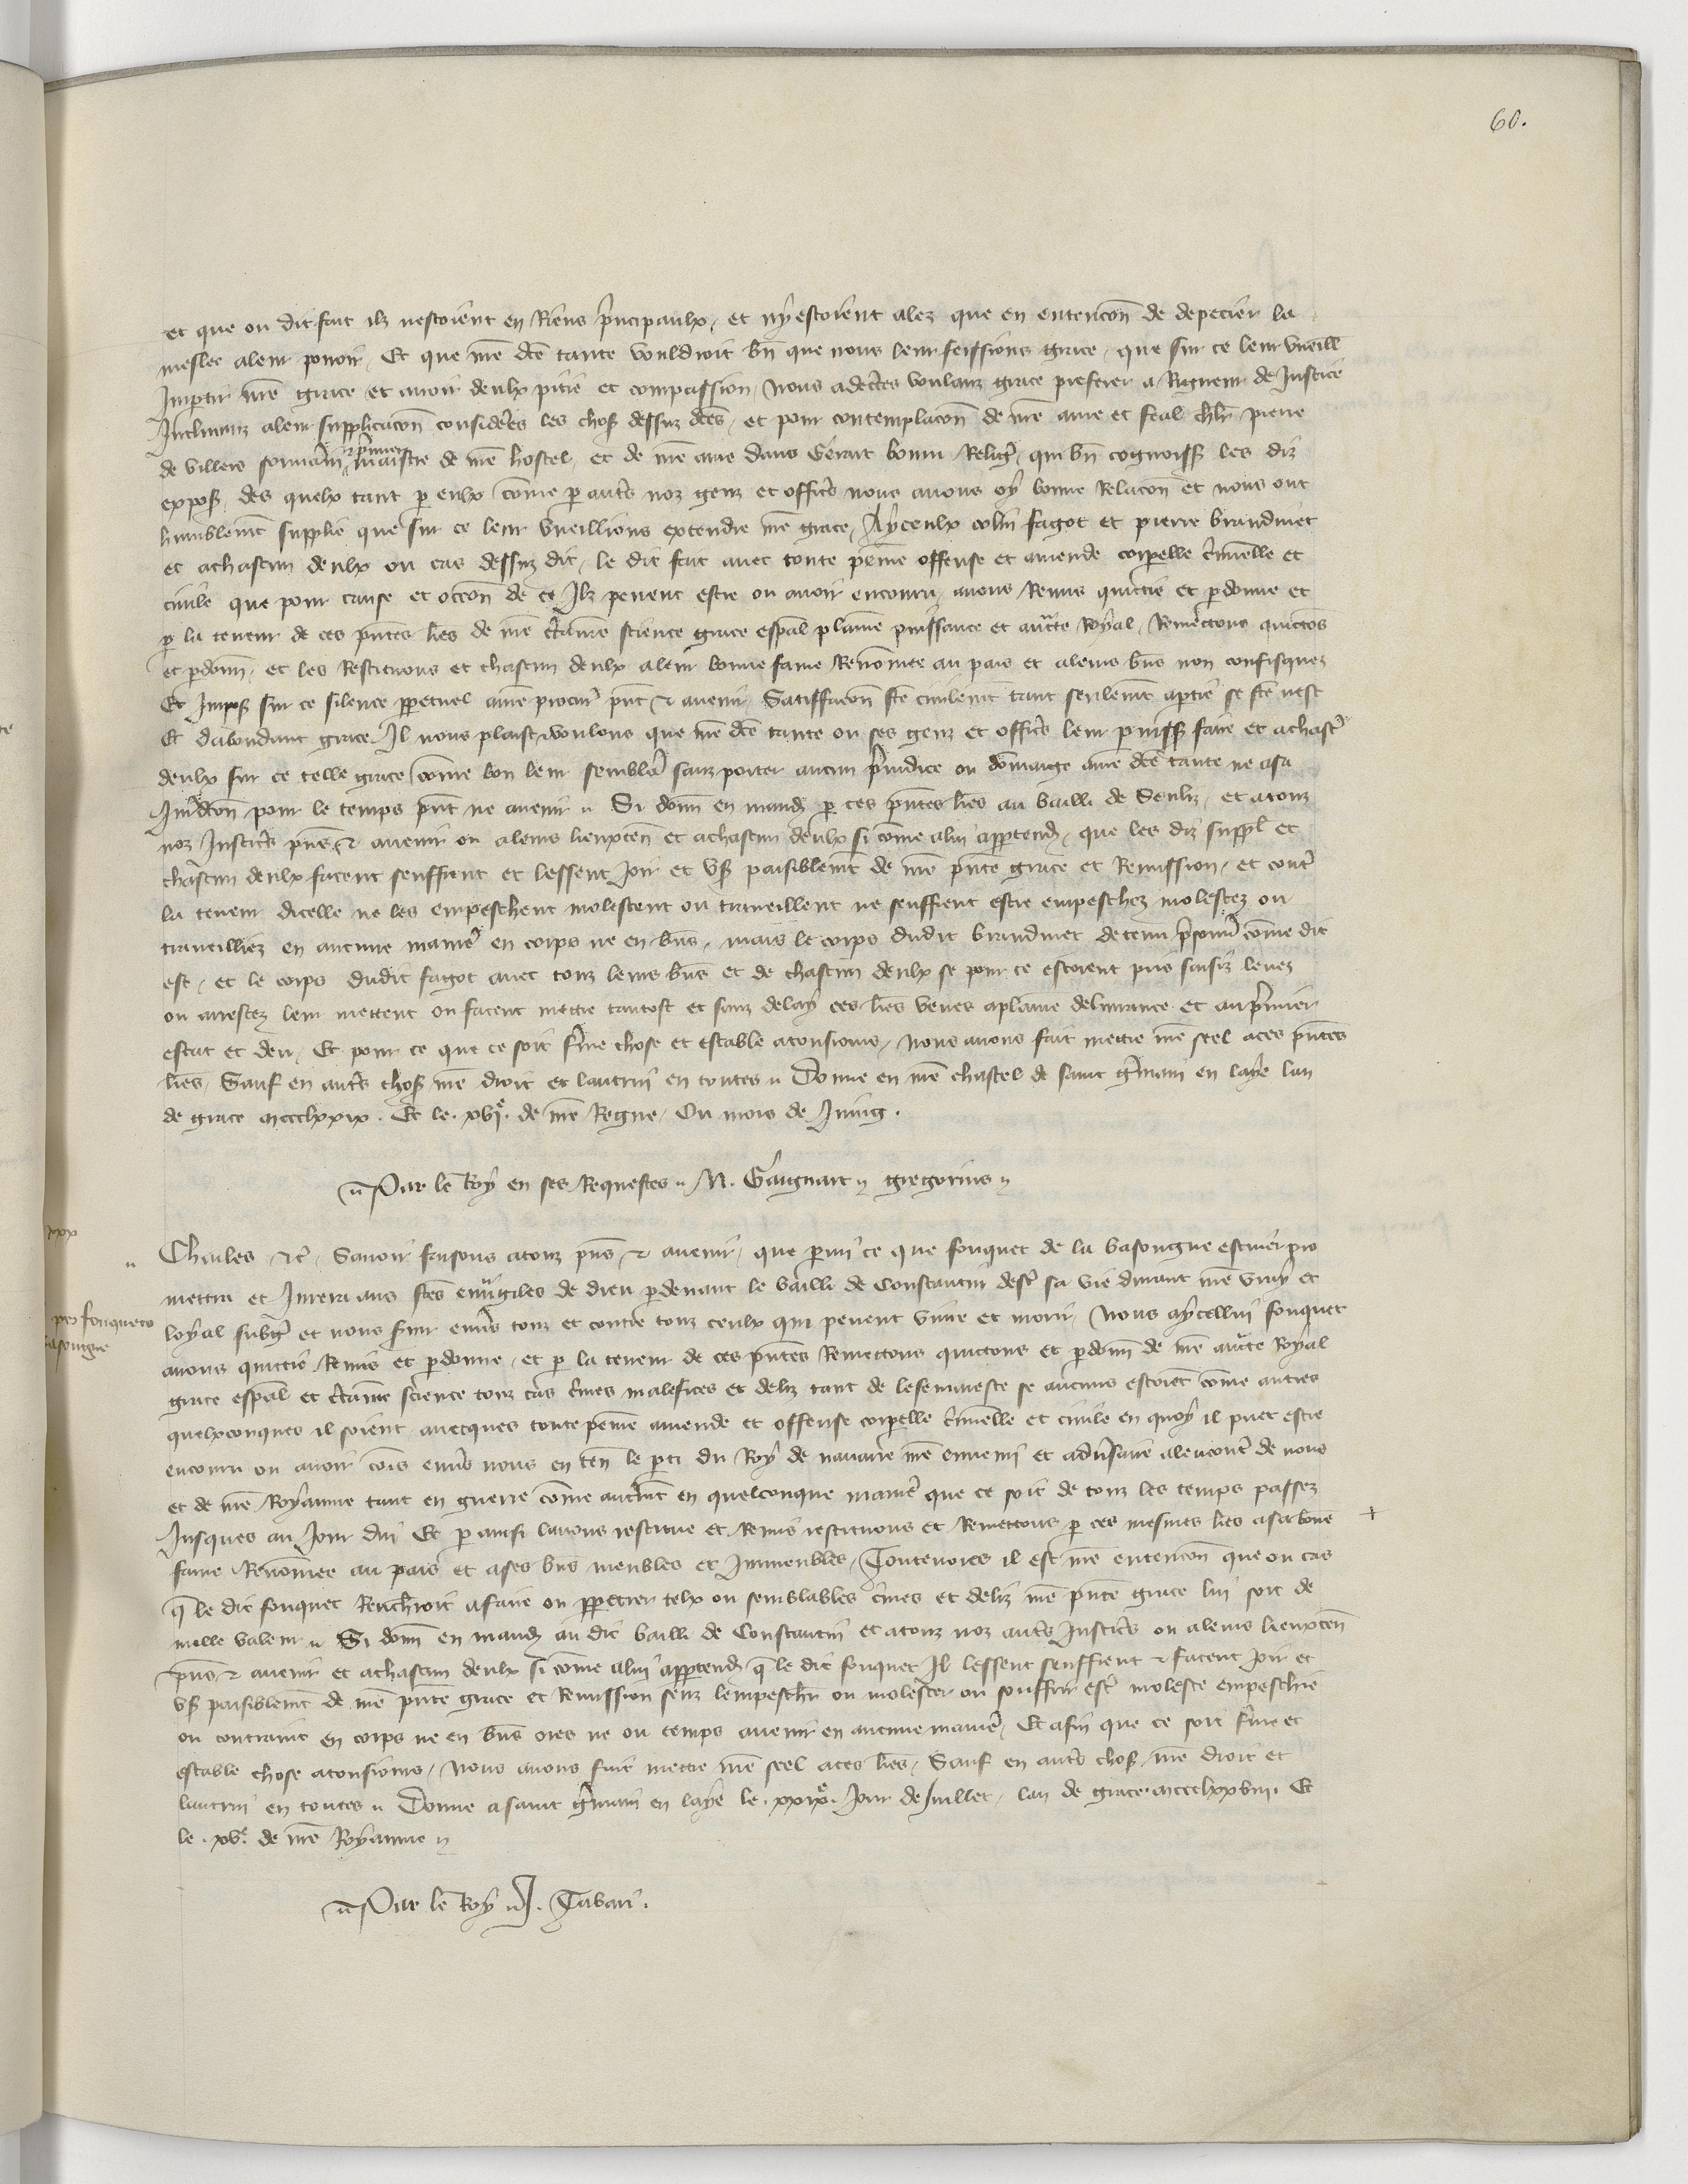 60.
et que ou dit fait ilz nestoient en Riens pncipaulx, et ny estoient alez que en entencon de depecier la
meslee aleur pouoir, Et que nre dce tante vouldroit bn que nous leur feissions grace, que sur ce leur vueill
Impartir nre grace et auoir deulx pitie et compassion, Nous adecertes voulanz grace preferer a Rigueur de Justice
Inclinanz aleur supplicacon considerees les choses dessuz dces, et pour contemplacon de nre ame et feal chlr pierre
de villers souuain et pmier maistre de nre hostel, et de nre ame dans Gerart bonin Religs, qui bn cognoiss les diz
expos, des quelx tant p eulx come p auts noz genz et officrs nous auons oy bonne Relacon et nous ont
humblemt supplie que sur ce leur vueillions extendre nre grace, Ayceulx colin fagot et pierre brandinet
et achascun deulx ou cas dessuz dit, le dit fait auec toute peine offense et amende corpelle criminelle et
ciuile que pour cause et occon de ce Ilz peuent estre ou auoir encouru, auons Remis quictie et pdonne et
p la teneur de ces pntes lres de nre ctaine science grace espal plaine puissance et aucte Royal, Remectons quictos
et pdonns, et les Restituons et chascun deulx aleur bonne fame Renomee au pais et aleurs bns non confisquez
Et Impos sur ce silence ppetuel anre procur pnt & auenir, Satiffacon fte ciuilemt tant seulemt aptie se fte nest
Et dabondant grace Il nous plaist & voulons que nre dce tante ou ses genz et officrs leur puiss faire et achascun
deulx sur ce telle grace come bon leur semblera sanz porter aucun pjudice ou domaige anre dce tante ne asa
Juridcon pour le temps pnt ne auenir. Si donns en mandt p ces pntes lres au bailli de Senliz, et atouz
noz Justicrs pns & auenir ou aleurs lieuxten et achascun deulx si come alui apptendra, que les diz suppl et
chascun deulx facent seuffrent et lessent joir et vser paisiblemt de nre pnte grace et Remission, et contre
la teneur dicelle ne les empeschent molestent ou traueillent ne seuffrent estre empeschez molestez ou
traueilliez en aucune maniere en corps ne en bns, mais le corps dudit brandinet detenu prisonn come dit
est, et le corps dudit fagot auec touz leurs bns et de chascun deulx se pour ce estoient pris saisiz leuez
ou arrestez leur mettent ou facent mettre tantost et sanz delay ces lres veues aplaine deliurance et au pmier
estat et deu, Et pour ce que ce soit ferme chose et estable atousiours, Nous auons fait mettre nre seel aces pntes
lres, Sauf en auts choses nre droit et lautrui en toutes. Donne en nre chastel de saint Gmain en laye lan
de grace mccclxxix. Et le .xvie. de nre Regne, Ou mois de Juing.
Par le Roy en ses Requestes. N. Gaignart. gregorius.
Charles &c. Sauoir faisons atouz pns & auenir, que parmi ce que fouquet de la vasongne escuier pro
mettra et Jurera aus stes euuangiles de dieu pdeuant le bailli de Constantin destre sa vie durant nre vray et
pro fouqueto
asongne
loyal subget et nous seruir enuers touz et contre touz ceulx qui peuent viure et morir, Nous aycellui fouquet
auons quictie Remis et pdonne, et p la teneur de ces pntes Remectons quictons et pdonns de nre aucte Royal
grace espal et ctaine science touz cas crimes malefices et deliz tant de lesemaieste se aucuns estoiet come autres
quelxconques il soient auecques toute peine amende et offense corpelle criminelle et ciuile en quoy il puet estre
encouru ou auoir comis enuers nous en ten le pti du Roy de nauarre nre ennemi et aduersaire alencontre de nous
et de nre Royaume tant en guerre come autremt en quelconque maniere que ce soit de touz les temps passez
Jusques au Jour dui Et p ainsi lauons restitue et Remis restituons et Remettons p ces mesmes lres asa bone
fame Renomee au pais et ases bns meubles et Immeubles, Touteuoies il est nre entencon que ou cas
q le dit fouquet Rencherroit afaire ou ppetrer telx ou semblables crimes et deliz nre pnte grace lui soit de
nulle valeur. Si donns en mandt au dit bailli de Constantin et atouz noz auts Justicrs ou aleurs lieuxten
pns & auenir et achascun deulx si come alui apptendra q le dit fouquet Il lessent seuffrent & facent joir et
vser paisiblemt de nre pnte grace et Remission senz lempeschr ou molester ou souffrir estre moleste empeschie
ou contraint en corps ne en bns ores ne ou temps auenir en aucune maniere, Et afin que ce soit ferme et
estable chose atousiours, Nous auons fait mettre nre seel aces lres, Sauf en auts choses nre droit et
lautrui en toutes. Donne a saint Gmain en laye le .xxixe. Jour de Juillet, lan de grace mccclxxviii. Et
le .xve. de nre Royaume.
Par le Roy. J. Tabari.